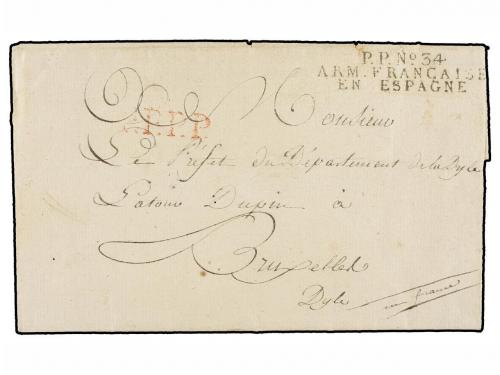 P.P.Nº 34
ARM. FRANÇAISE
EN ESPAGNE
P.P.P.
Monsieur
Le Préfet du Département de la Dyle
Latour Dupin à
Bruxelles
Dyle
en france